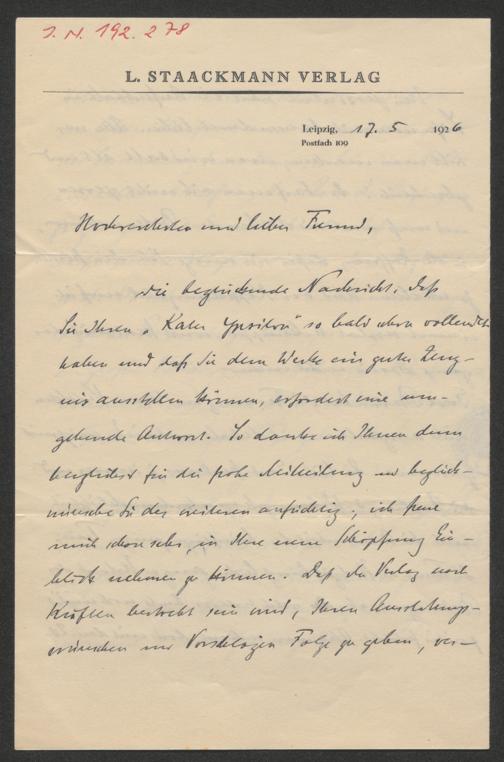 J. N. 192.278
L. STAACKMANN VERLAG
Leipzig, 17. 5 1926
Postfach 109
Hochverehrter und lieber Freund,
die beglückende Nachricht, daß
Sie Ihren „Kater Ypsilon" so bald schon vollendet
haben und daß Sie dem Werke ein gutes Zeug-
nis ausstellen können, erfordert eine um-
gehende Antwort. So danke ich Ihnen denn
herzlichst für die frohe Mitteilung und beglück-
wünsche Sie des weiteren aufrichtig; ich freue
mich schon sehr, in Ihre neue Schöpfung Ein-
blick nehmen zu können. Daß der Verlag nach
Kräften bestrebt sein wird, Ihren Ausstattungs-
wünschen und Vorschlägen Folge zu geben, ver-